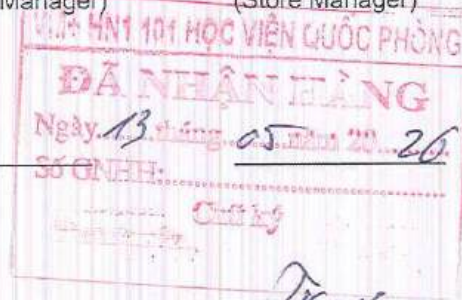 Manager) (Store Manager)
HN1 101 HỌC VIỆN QUỐC PHÒNG
ĐÃ NHẬN HÀNG
Ngày 13 tháng 05 năm 20 26
Số GNHH:
Chữ ký